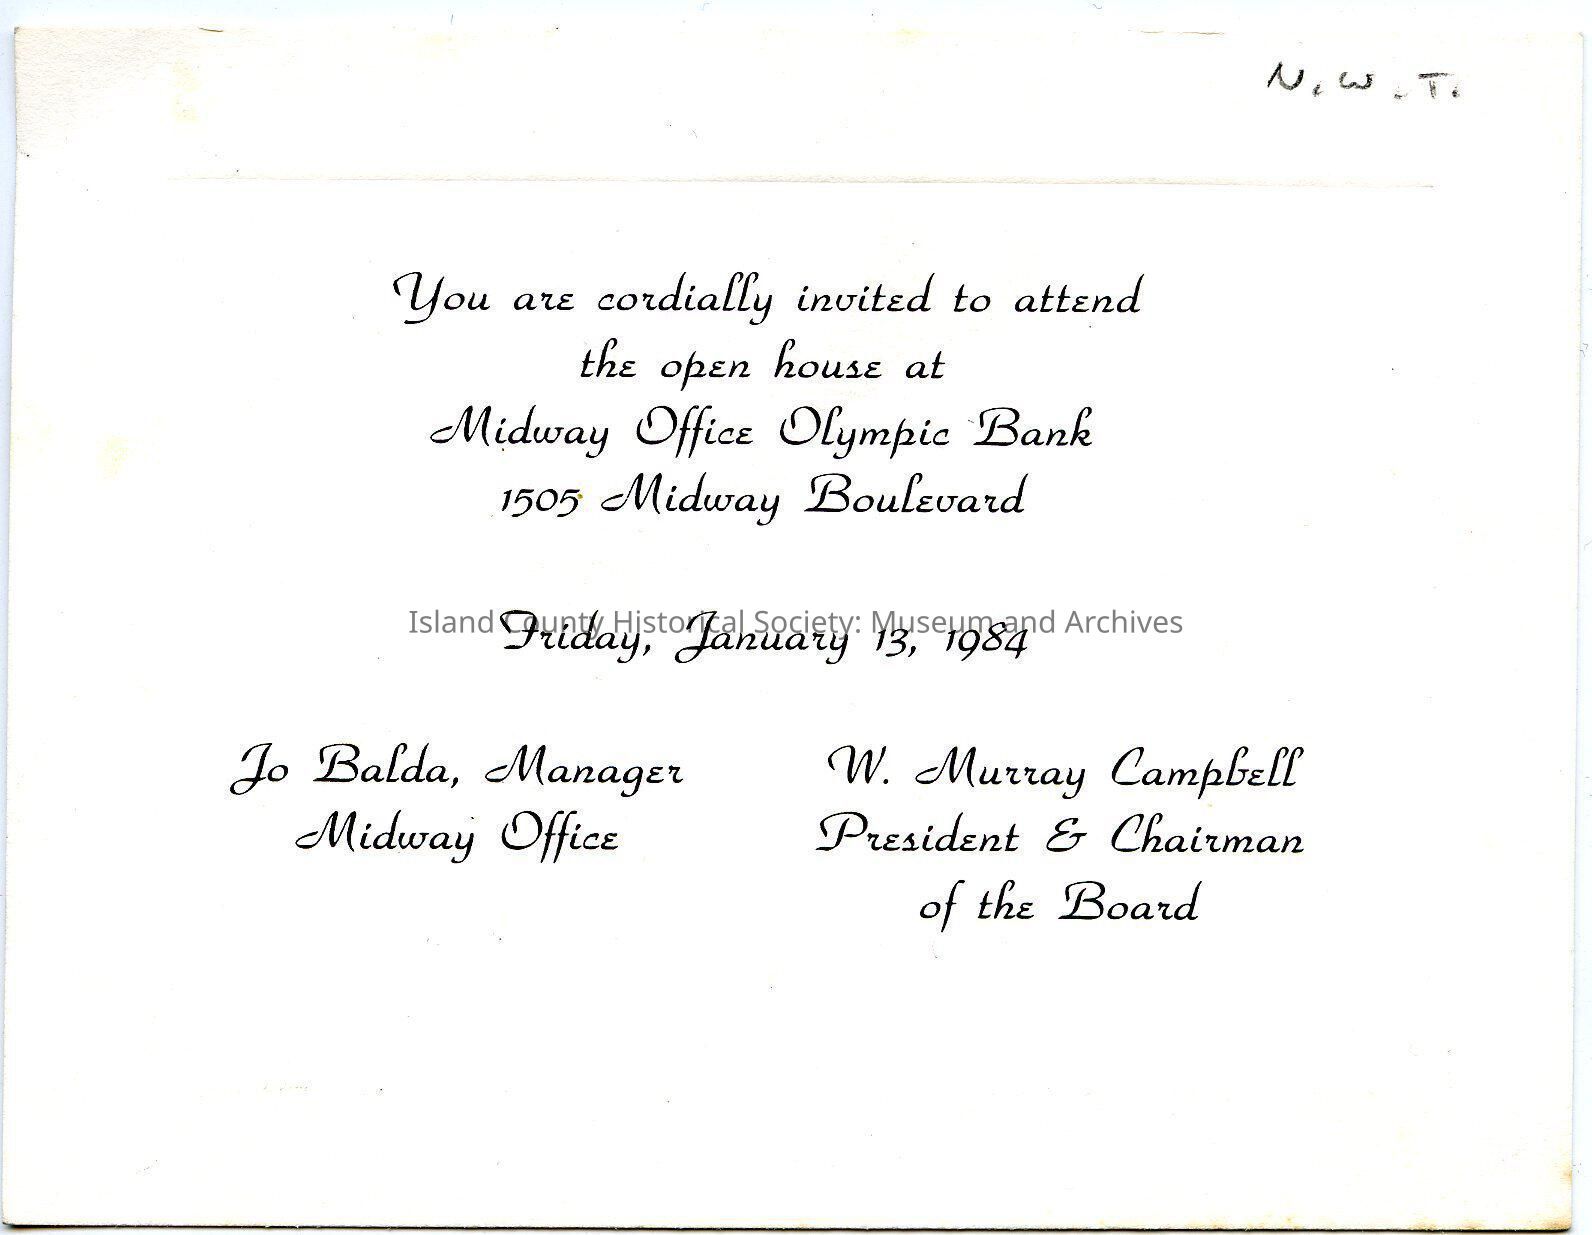 N.W.T.
You are cordially invited to attend
the open house at
Midway Office Olympic Bank
1505 Midway Boulevard
Island County Historical Society: Museum and Archives
Friday, January 13, 1984
Jo Balda, Manager
Midway Office
W. Murray Campbell
President & Chairman
of the Board